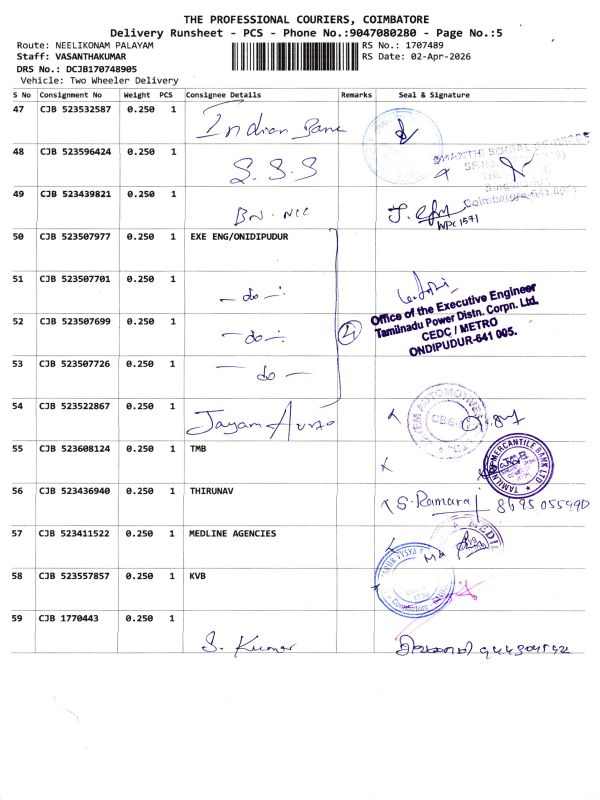 THE PROFESSIONAL COURIERS, COIMBATORE
Delivery Runsheet - PCS - Phone No.:9047080280 - Page No.:5
Route: NEELIKONAM PALAYAM
RS No.: 1707489
Staff: VASANTHAKUMAR
RS Date: 02-Apr-2026
DRS No.: DCJB170748905
Vehicle: Two Wheeler Delivery
S No Consignment No Weight PCS Consignee Details Remarks Seal & Signature
47 CJB 523532587 0.250 1 Indian Bank
48 CJB 523596424 0.250 1 S.S.S
49 CJB 523439821 0.250 1
WPC 1571
50 CJB 523507977 0.250 1 EXE ENG/ONIDIPUDUR
51 CJB 523507701 0.250 1 - do -
52 CJB 523507699 0.250 1 - do -
4
Office of the Executive Engineer
Tamilnadu Power Distn. Corpn. Ltd.
CEDC / METRO
ONDIPUDUR-641 005.
53 CJB 523507726 0.250 1 - do -
54 CJB 523522867 0.250 1 Jayam
55 CJB 523608124 0.250 1 TMB
TAMILNAD MERCANTILE BANK LTD
56 CJB 523436940 0.250 1 THIRUNAV
S. Ramaraj 8695055990
57 CJB 523411522 0.250 1 MEDLINE AGENCIES
58 CJB 523557857 0.250 1 KVB
59 CJB 1770443 0.250 1 S. Kumar